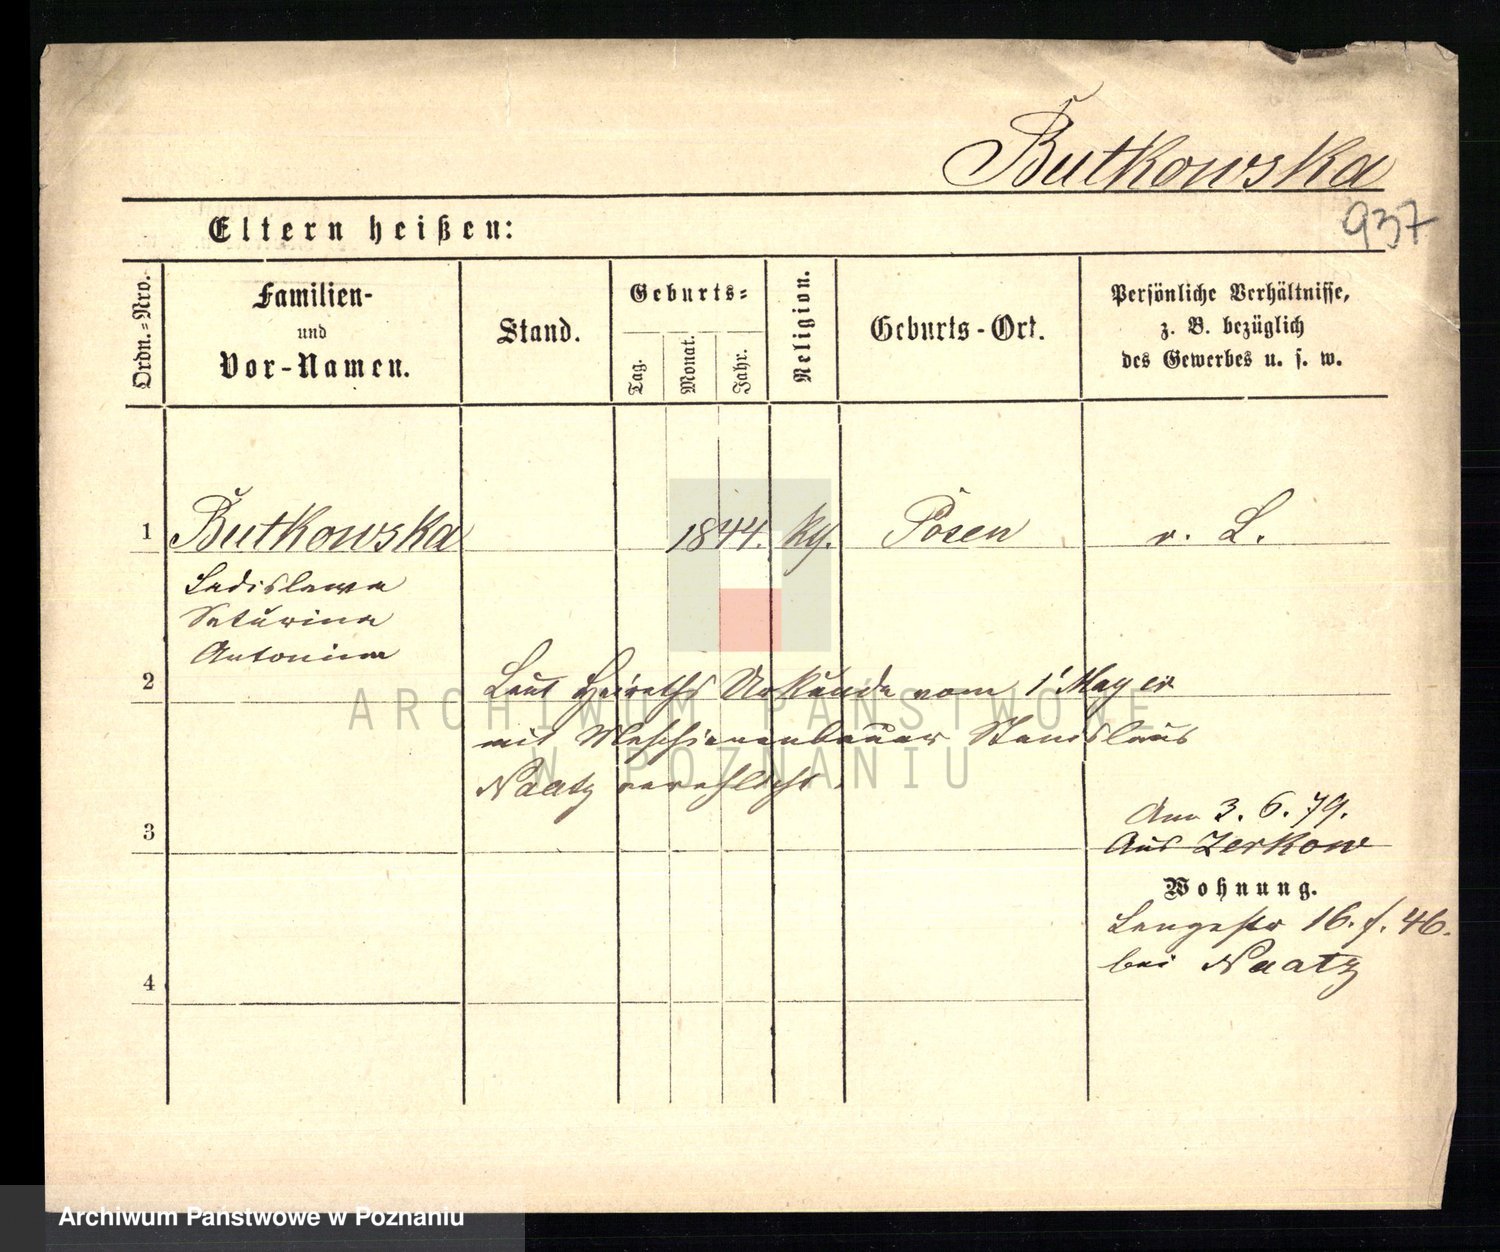 Butkowska
937
Eltern heißen:
Ordn.-Nro.
Familien-
und
Vor-Namen.
Stand.
Geburts-
Tag.
Monat.
Jahr.
Religion.
Geburts-Ort.
Persönliche Verhältnisse,
z. B. bezüglich
des Gewerbes u. s. w.
1 Butkowska 1844. Posen v. L.
Ladislawa
Saturina
Antonina
2
Laut Heiraths Urkunde vom 1 May cr
mit Maschienenbauer Stanislaus
Naatz verehlicht.
3
Am 3. 6. 79.
Aus Zerkow
Wohnung.
Langestr 16. f. 46.
bei Naatz
4
ARCHIWUM PAŃSTWOWE
W POZNANIU
Archiwum Państwowe w Poznaniu